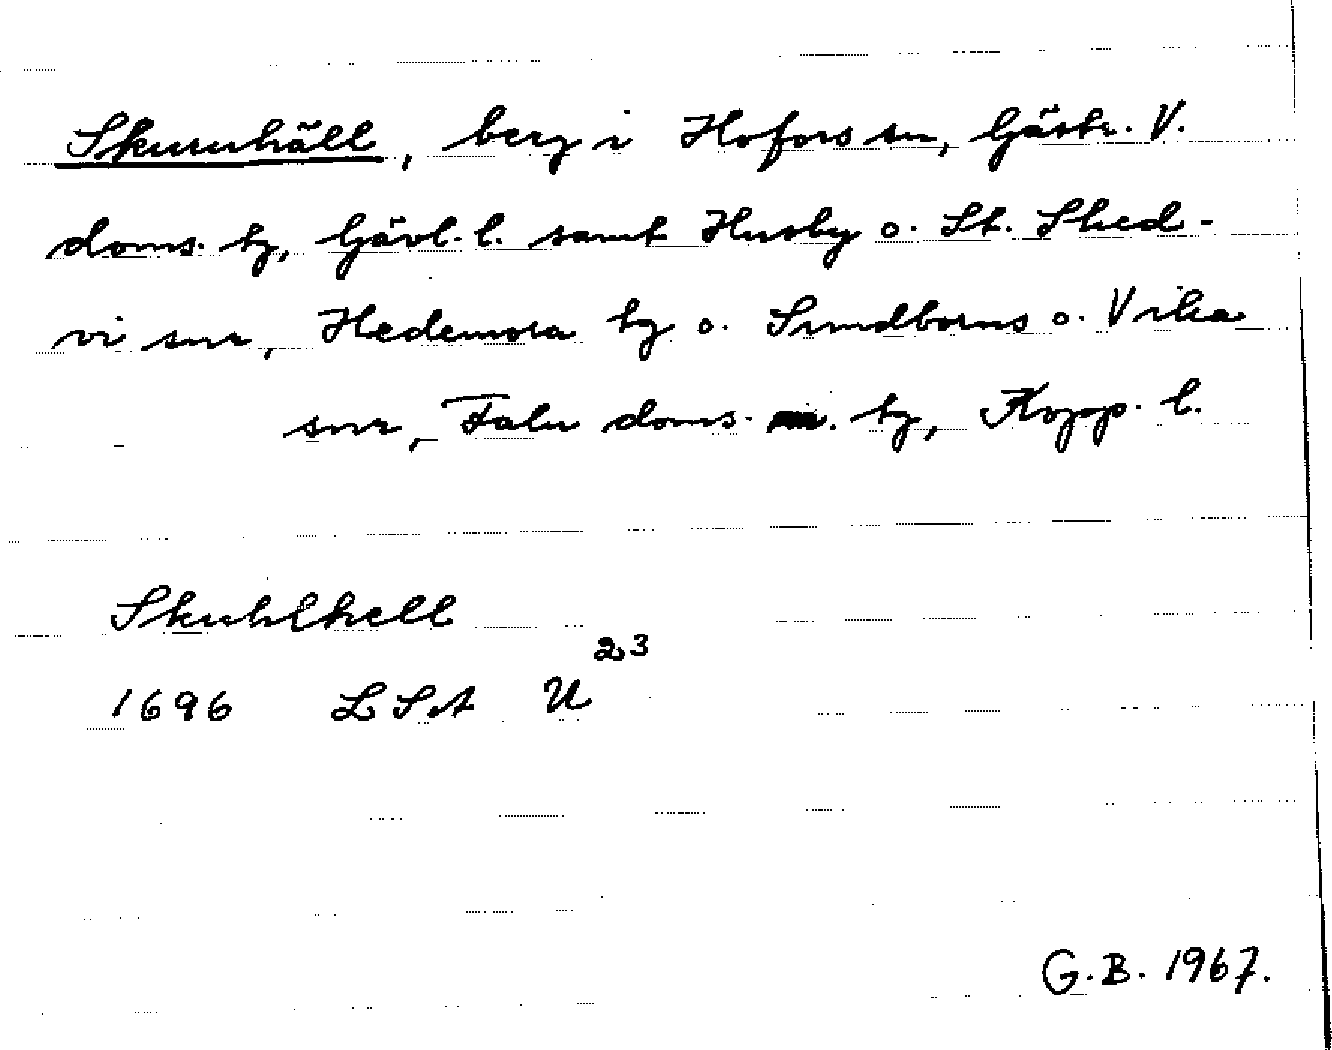 Skuruhäll, berg i Hofors sn, Gästr. V.
doms. tg, Gävl. l. samt Husby o. St. Sked-
vi snr, Hedemora tg o. Sundborns o. Vika
snr, Falu doms. tg, Kopp. l.
Skuhlhell
1696 LSA U 23
G.B. 1967.